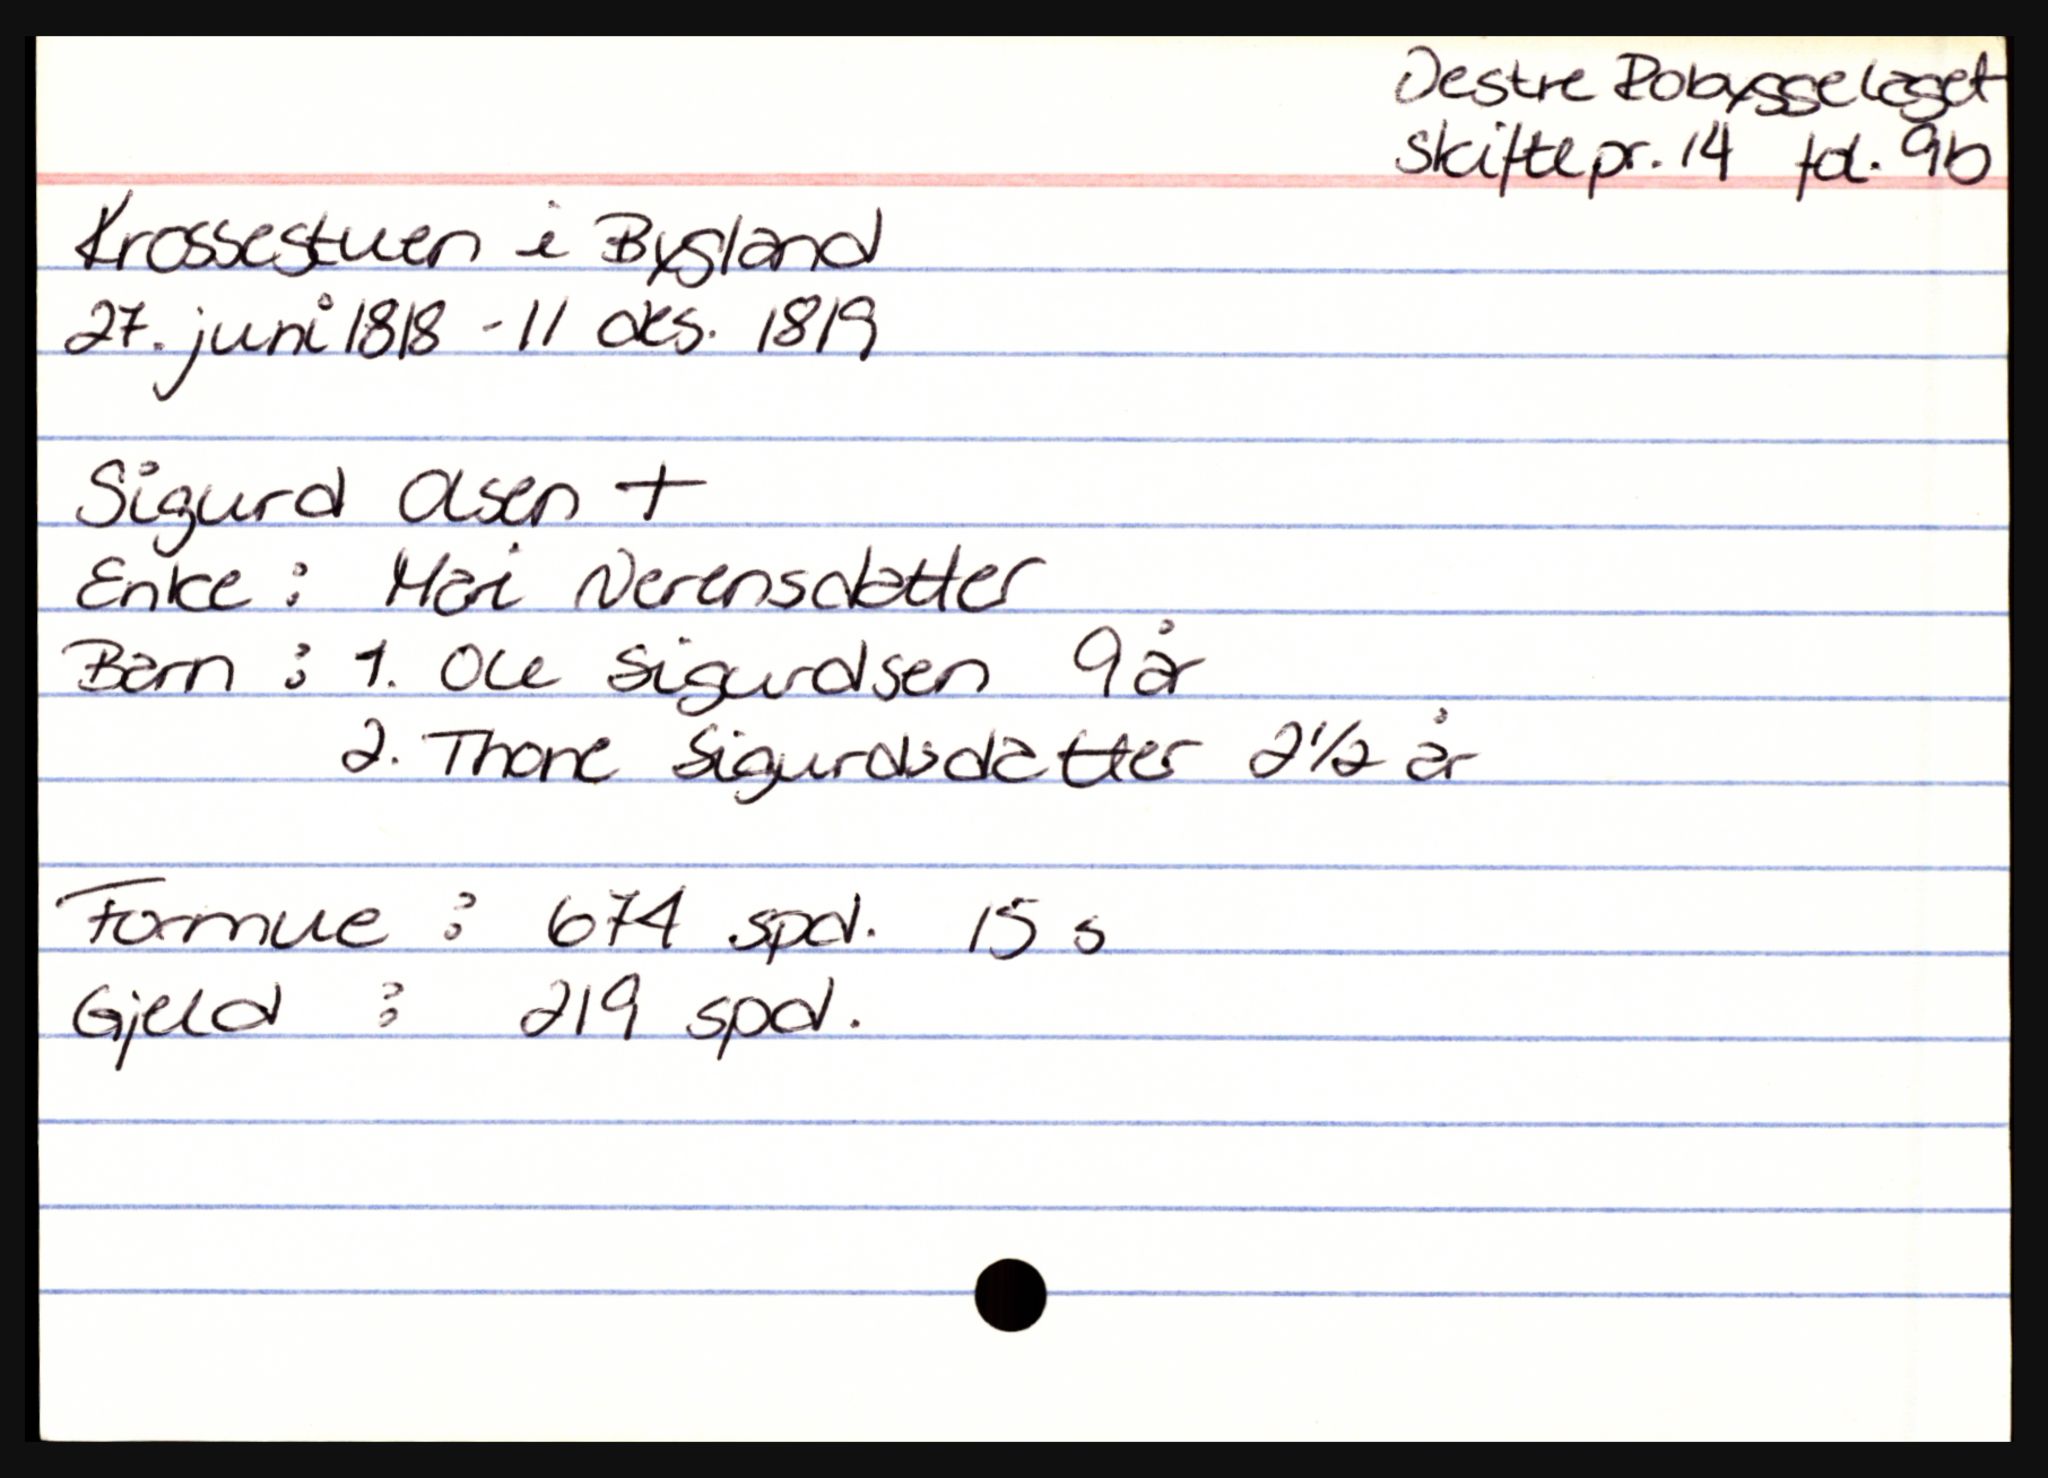 Vestre Robyggelaget
skiftepr. 14 fol. 9b
Krossestuen i Bygland
27. juni 1818 - 11 des. 1819
Sigurd Olsen +
Enke : Mari Nerensdatter
Barn : 1. Ole Sigurdsen 9 år
2. Thone Sigurdsdatter 2 1/2 år
Formue : 674 spd. 15 s
Gjeld : 219 spd.